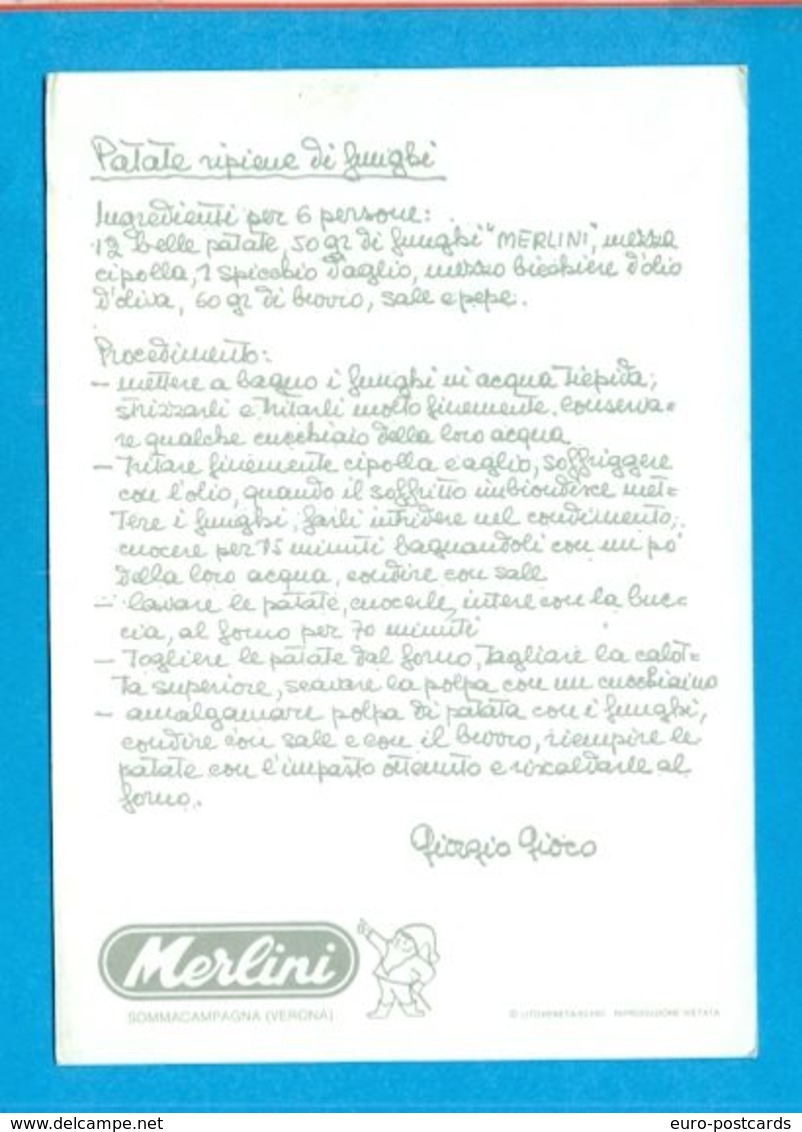 Patate ripiene di funghi
Ingredienti per 6 persone:
12 belle patate, 50 gr di funghi "MERLINI", mezza
cipolla, 1 spicchio d'aglio, mezzo bicchiere d'olio
d'oliva, 60 gr di burro, sale e pepe.
Procedimento:
- mettere a bagno i funghi in acqua tiepida;
strizzarli e tritarli molto finemente. Conserva=
re qualche cucchiaio della loro acqua
- tritare finemente cipolla e aglio, soffriggere
con l'olio, quando il soffritto imbiondisce met=
tere i funghi, farli intridere nel condimento,
cuocere per 15 minuti bagnandoli con un po'
della loro acqua, condire con sale
- lavare le patate, cuocerle, intere con la buc=
cia, al forno per 70 minuti
- togliere le patate dal forno, tagliare la calot=
ta superiore, scavare la polpa con un cucchiaino
- amalgamare polpa di patata con i funghi,
condire con sale e con il burro, riempire le
patate con l'impasto ottenuto e riscaldarle al
forno.
Giorgio Gioco
Merlini
SOMMACAMPAGNA (VERONA)
© RIPRODUZIONE VIETATA
delcampe.net
euro-postcards